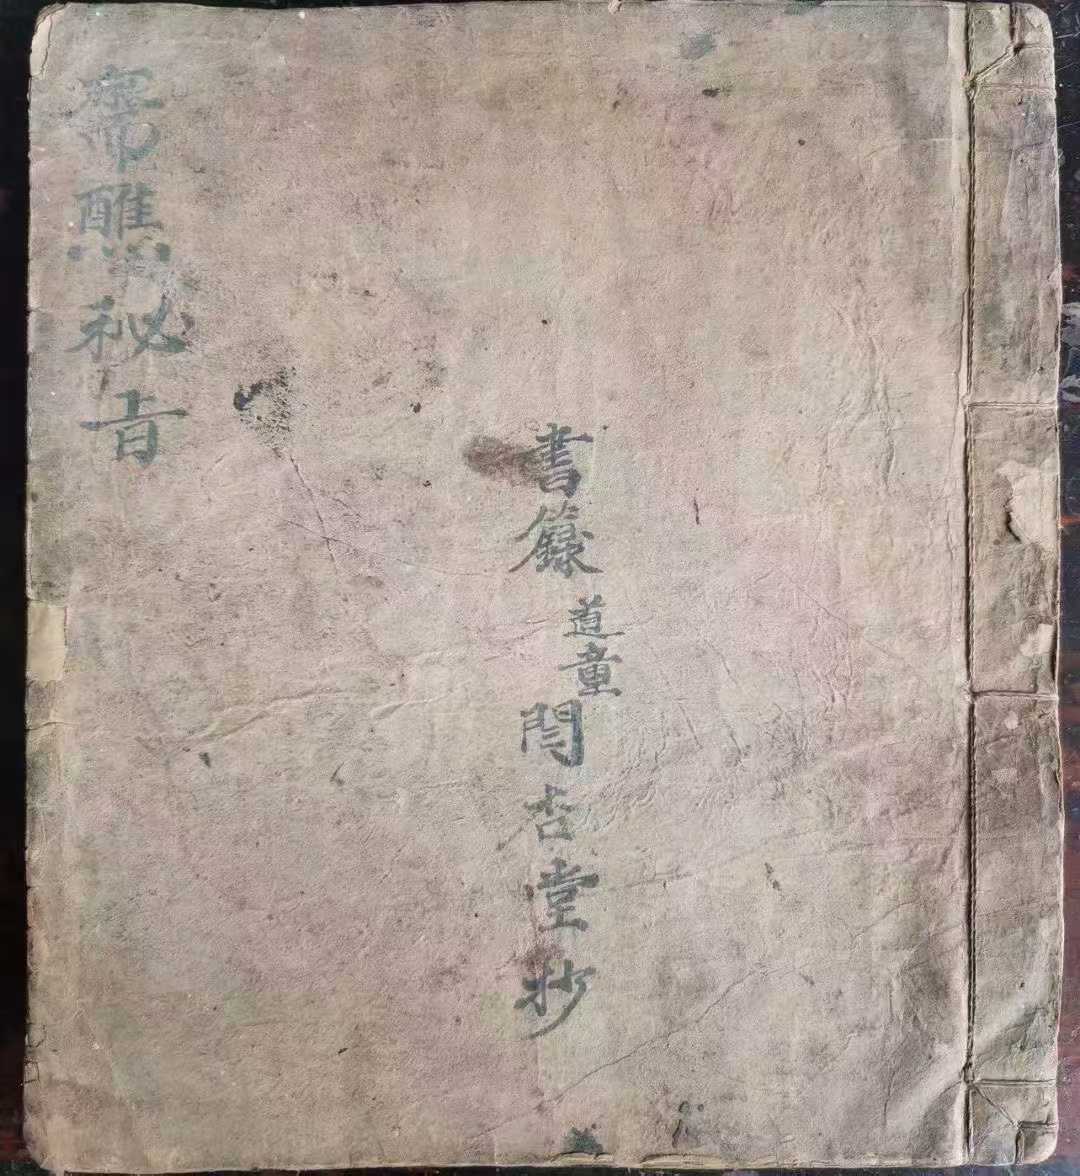 書籙道童閆杏堂抄
齋醮秘旨